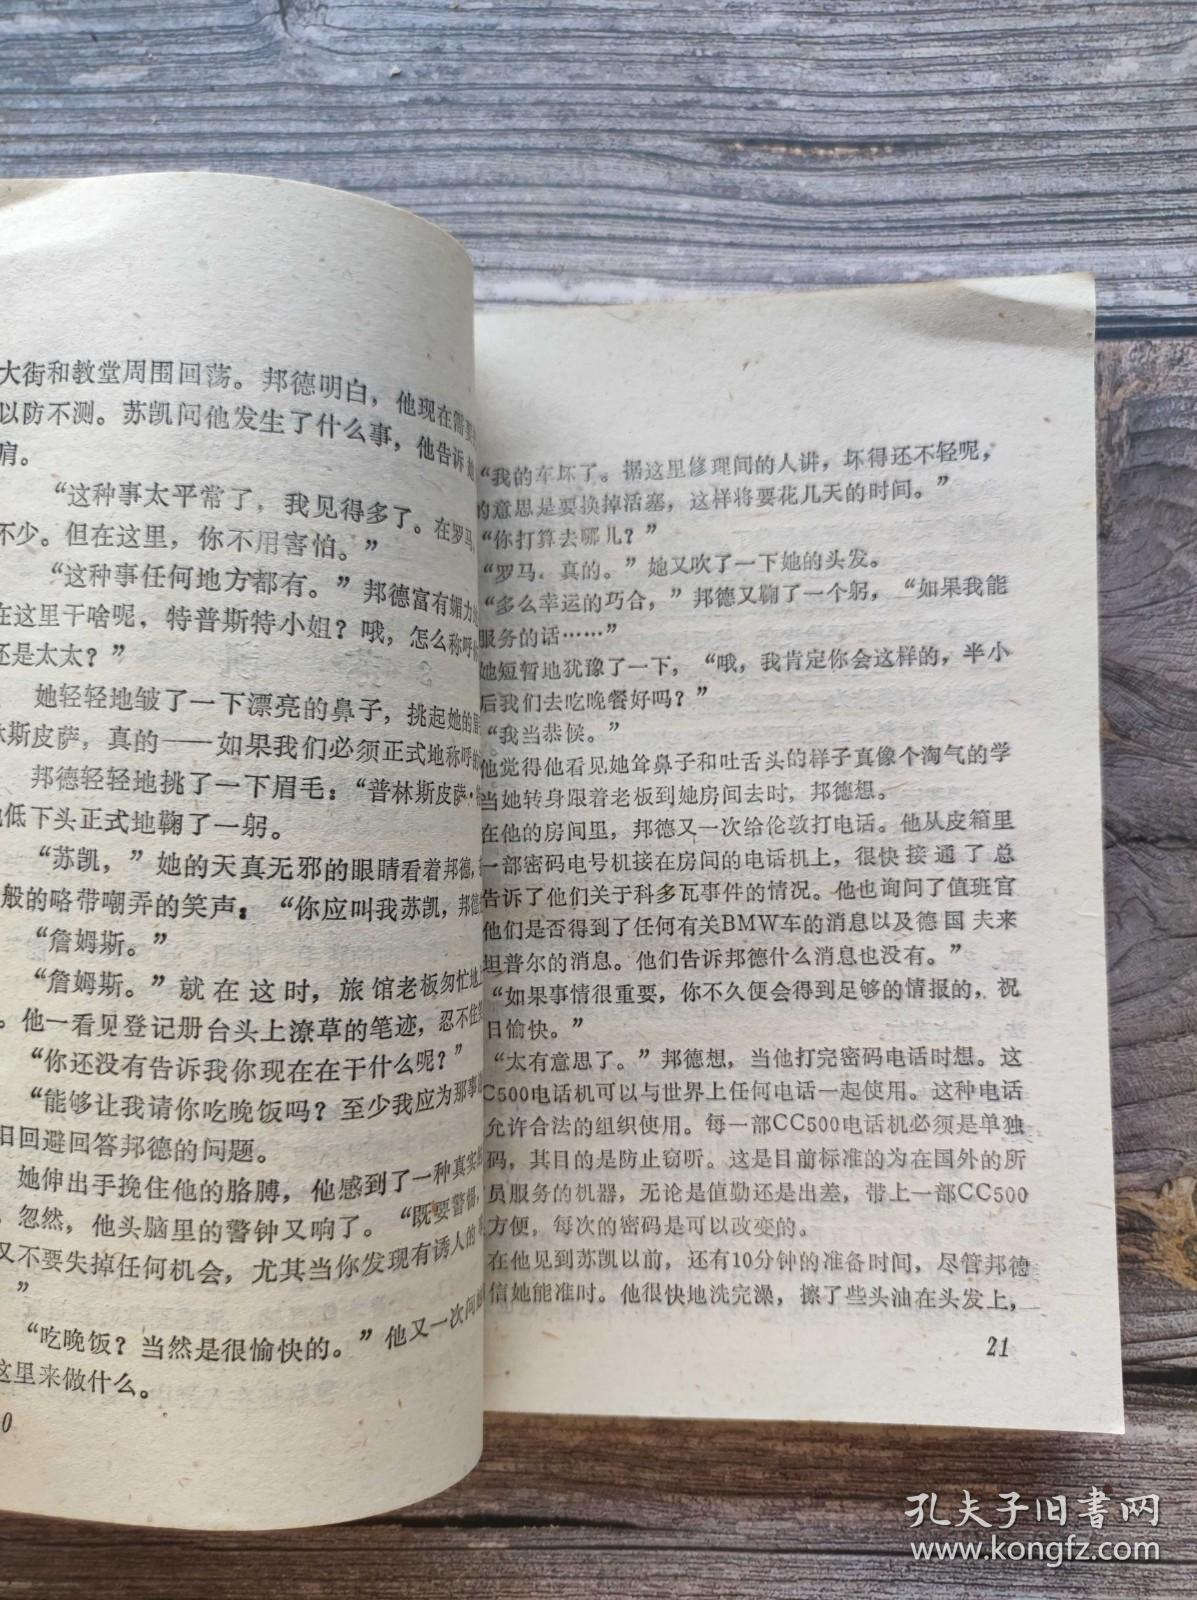 大街和教堂周围回荡。邦德明白，他现在需要
以防不测。苏凯问他发生了什么事，他告诉她
肩。
“这种事太平常了，我见得多了。在罗马，
不少。但在这里，你不用害怕。”
“这种事任何地方都有。”邦德富有媚力
在这里干啥呢，特普斯特小姐？哦，怎么称呼你
还是太太？”
她轻轻地皱了一下漂亮的鼻子，挑起她的眉
林斯皮萨，真的——如果我们必须正式地称呼的
邦德轻轻地挑了一下眉毛：“普林斯皮萨·特
他低下头正式地鞠了一躬。
“苏凯，”她的天真无邪的眼睛看着邦德，
般的略带嘲弄的笑声：“你应叫我苏凯，邦德
“詹姆斯。”
“詹姆斯。”就在这时，旅馆老板匆忙地
。他一看见登记册台头上潦草的笔迹，忍不住
“你还没有告诉我你现在在干什么呢？”
“能够让我请你吃晚饭吗？至少我应为那事
旧回避回答邦德的问题。
她伸出手挽住他的胳膊，他感到了一种真实
。忽然，他头脑里的警钟又响了。“既要警惕，
又不要失掉任何机会，尤其当你发现有诱人的
”
“吃晚饭？当然是很愉快的。”他又一次问她
这里来做什么。
0
“我的车坏了。据这里修理间的人讲，坏得还不轻呢，
的意思是要换掉活塞，这样将要花几天的时间。”
“你打算去哪儿？”
“罗马。真的。”她又吹了一下她的头发。
“多么幸运的巧合，”邦德又鞠了一个躬，“如果我能
服务的话……”
她短暂地犹豫了一下，“哦，我肯定你会这样的，半小
后我们去吃晚餐好吗？”
“我当恭候。”
他觉得他看见她耸鼻子和吐舌头的样子真像个淘气的学
当她转身跟着老板到她房间去时，邦德想。
在他的房间里，邦德又一次给伦敦打电话。他从皮箱里
一部密码电号机接在房间的电话机上，很快接通了总
告诉了他们关于科多瓦事件的情况。他也询问了值班官
他们是否得到了任何有关BMW车的消息以及德国夫来
坦普尔的消息。他们告诉邦德什么消息也没有。”
“如果事情很重要，你不久便会得到足够的情报的，祝
日愉快。”
“太有意思了。”邦德想，当他打完密码电话时想。这
C500电话机可以与世界上任何电话一起使用。这种电话
允许合法的组织使用。每一部CC500电话机必须是单独
码，其目的是防止窃听。这是目前标准的为在国外的所
员服务的机器，无论是值勤还是出差，带上一部CC500
方便，每次的密码是可以改变的。
在他见到苏凯以前，还有10分钟的准备时间，尽管邦德
信她能准时。他很快地洗完澡，擦了些头油在头发上，
21
孔夫子旧書网
www.kongfz.com